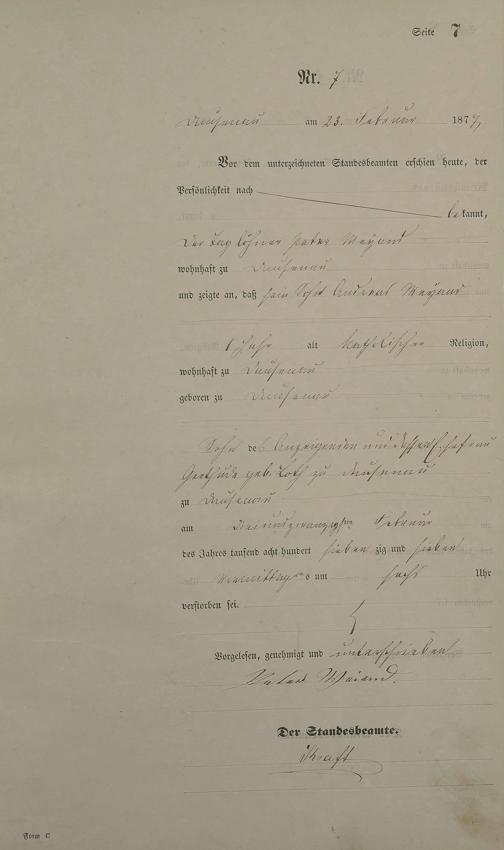 Seite 7
Nr. 7
Dausenau am 23. Februar 1877
Vor dem unterzeichneten Standesbeamten erschien heute, der
Persönlichkeit nach
bekannt,
der Taglöhner Peter Meyand
wohnhaft zu Dausenau
und zeigte an, daß sein Sohn Andreas Meyand
1 Jahr alt katholischer Religion,
wohnhaft zu Dausenau
geboren zu Dausenau
Sohn des Anzeigenden und dessen Ehefrau
Gerthrude geb. Loth zu Dausenau
zu Dausenau
am dreiundzwanzigsten Februar
des Jahres tausend acht hundert sieben zig und sieben
Vormittags um sechs Uhr
verstorben sei.
Vorgelesen, genehmigt und unterschrieben
Peter Meiand.
Der Standesbeamte.
Kraft
Form C